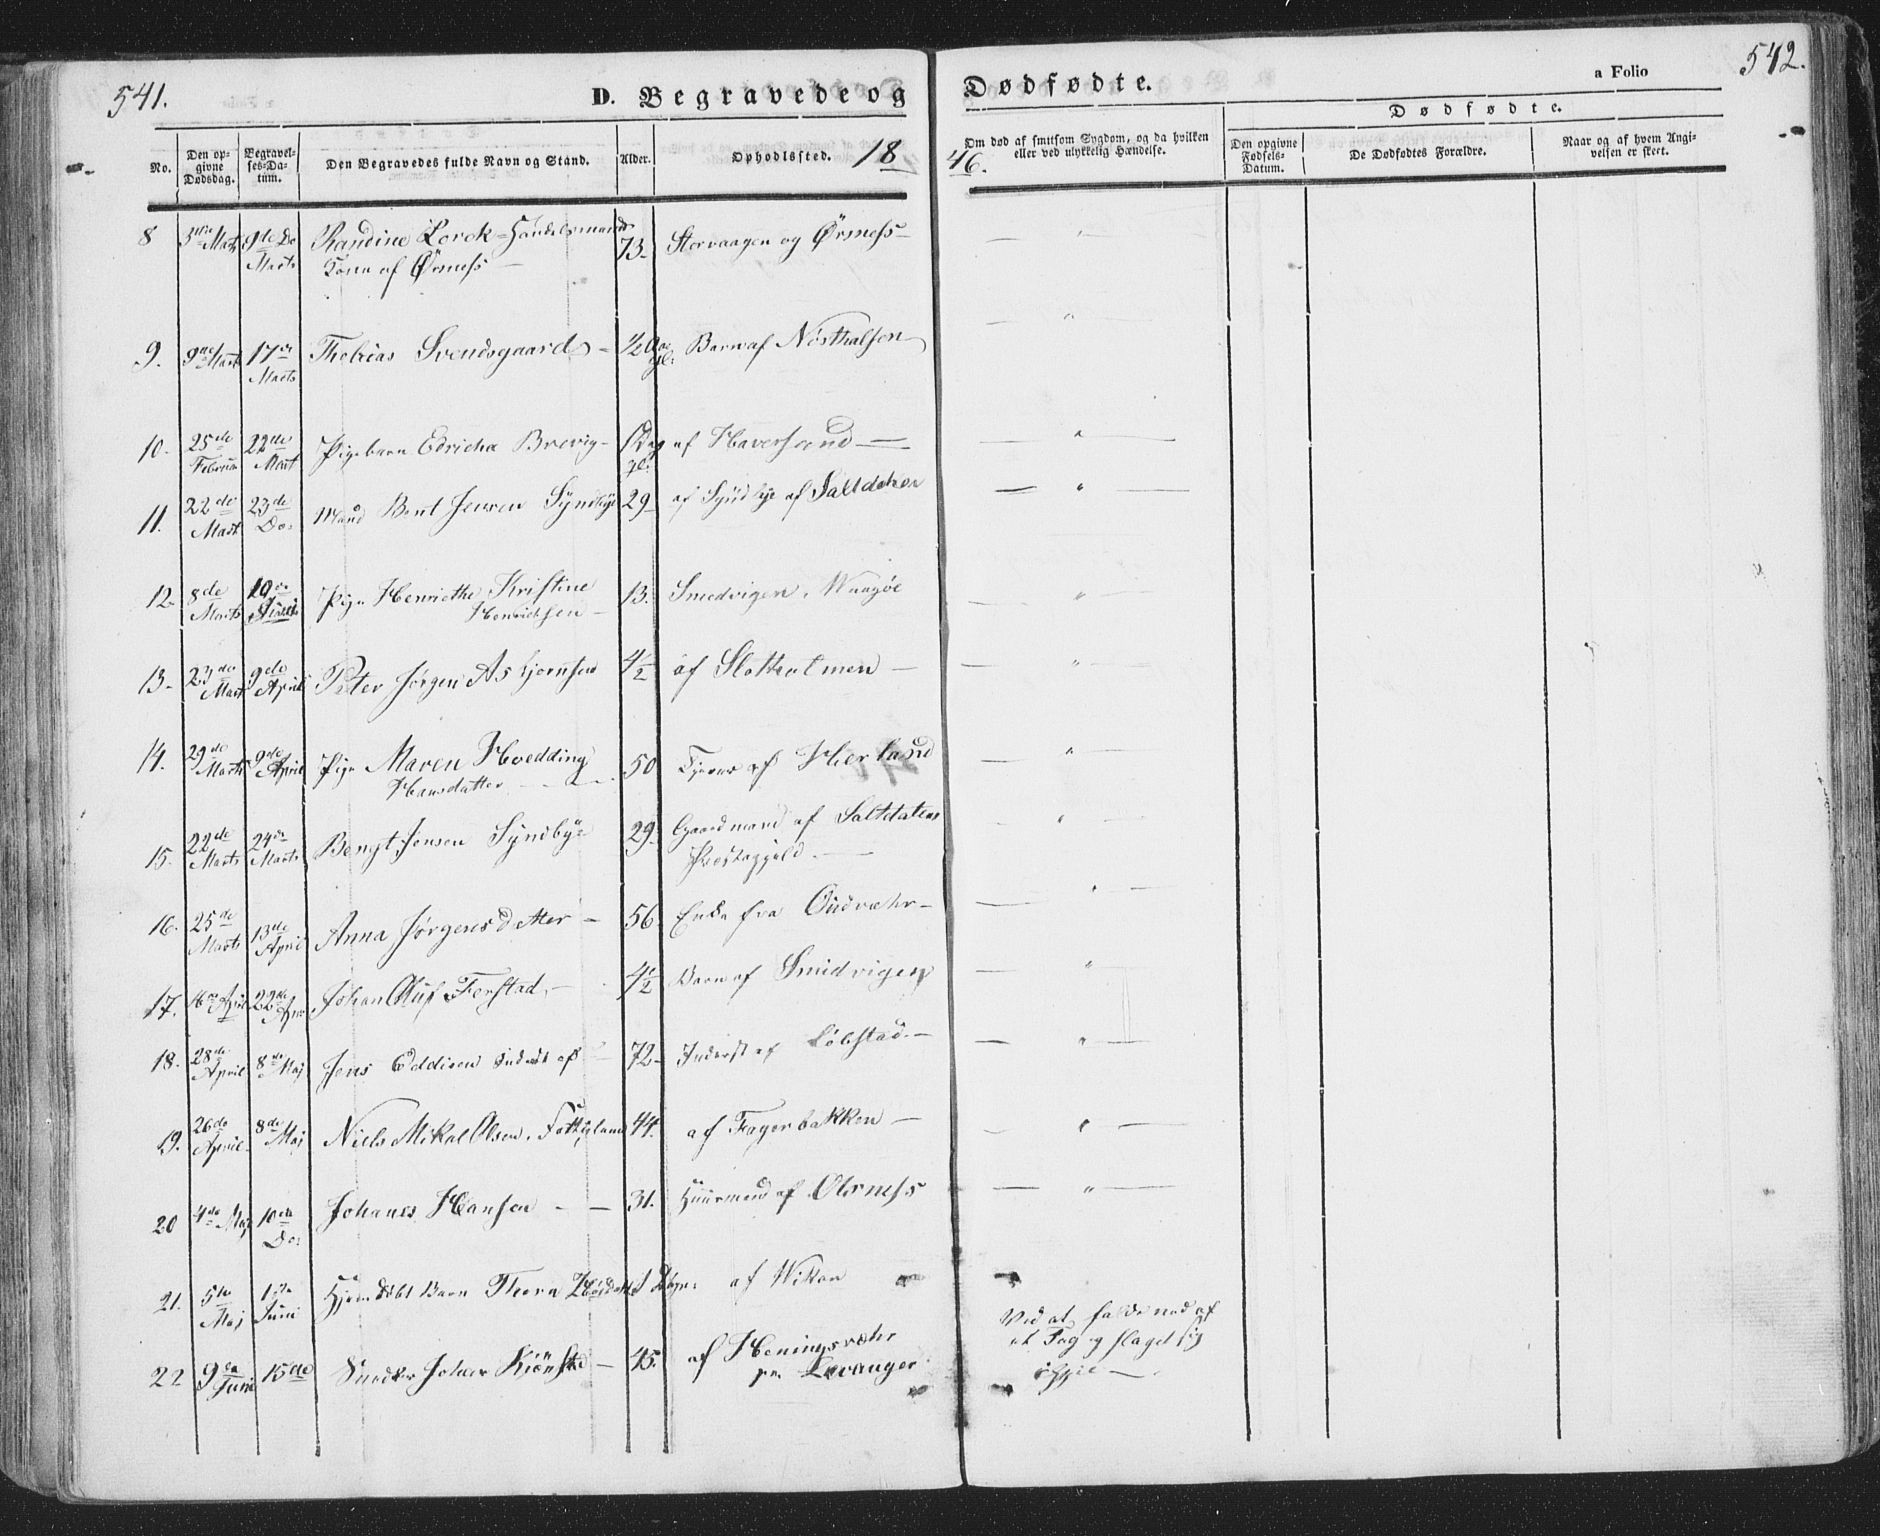 541.
D. Begravede og
Dødfødte.
a Folio
542.
No.
Den opgivne Dødsdag.
Begravelses-Datum.
Den Begravedes fulde Navn og Stand.
Alder.
Opholdssted.
1846.
Om død af smitsom Sygdom, og da hvilken
eller ved ulykkelig Hændelse.
Dødfødte.
Den opgivne Fødsels-Datum.
De Dødfødtes Forældre.
Naar og af hvem Angivelsen er skeet.
8 3die Marts 9de Do Marts Randine Lorck Handelsmands 73. Storvaagen og Örness
Kone af Örness
9. 9de Marts 17de Marts Thobias Svendsgaard 1/2 Barn af
10. 25de Februar 22de Mart Pigebarn Edricha Brevig 1 Dag gl. af Haversand
11. 22de Mart 23de Do: Mand Bent Jensen Syndbye 29 af Syndbye af Saltdalen
12. 8de Marts Pige Henriethe Kristine 13. Smedvigen
Henrichsen
13. 23de Mart 9de April Peter Jørgen Asbjørnsen 4 1/2 af Slotholmen
14. 29de Marts 9de April Pige Maren Hvedding 50 af
Hansdatter
15. 22de Marts 24de Marts Bengt Jensen Syndbye 29. Gaardmand af Saltdalens
Præstegjeld.
16. 25de Marts 13de April Anna Jørgensdatter 56 Enke fra
17. 16de April 22de Apr Johan Oluf Ferstad 4 1/2 Barn af Smidvigen
18. 28de April 8de Maj Jens Eddisen Inderst af 72 Inderst af
19. 26de April 8de Maj Niels Mikal Olsen. 44. af Fagerbakken
20 4de Maj 10de Do: Johanes Hansen 31. Huusmand af Olsness
21. 5te Maj 1ste Juni Hjemdøbt Barn af
22 9de Juni 15de Snedker 45. af Heningsvæhr
Levanger
Ved at falde ned af
et Tag og slaget sig